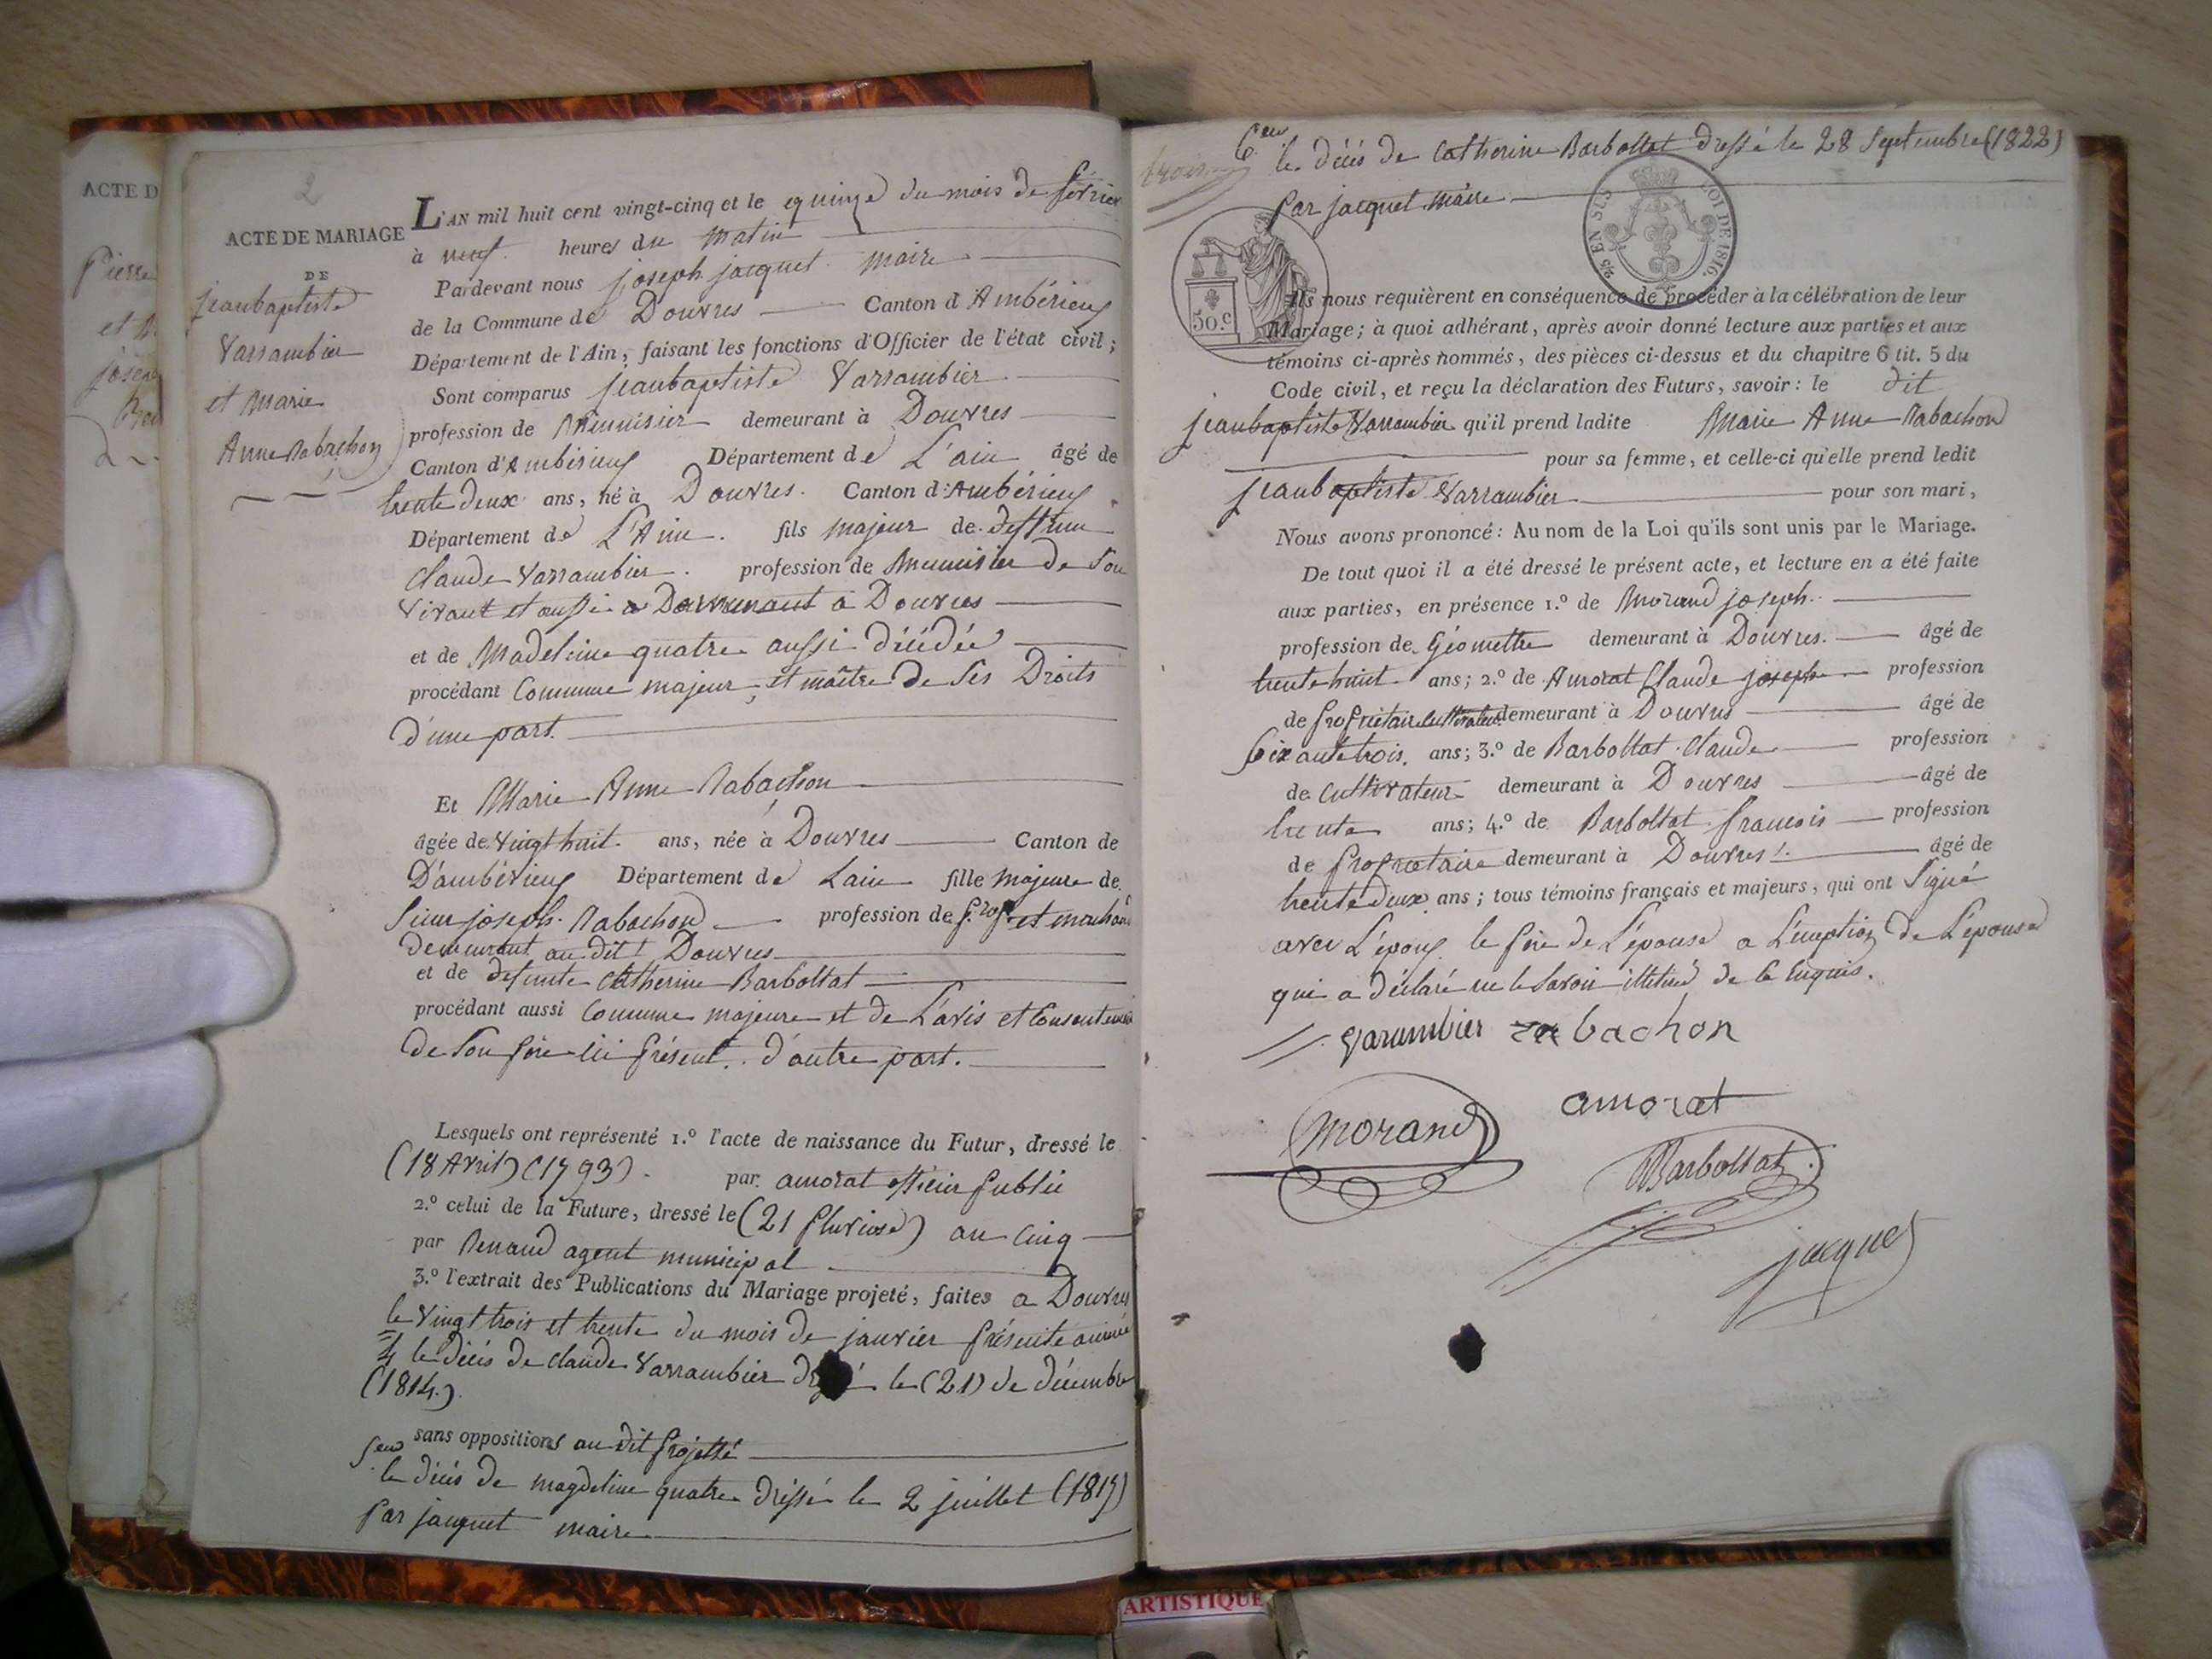 ACTE D
Pierre
et
joseph
2
ACTE DE MARIAGE
DE
jeanbaptiste
Varrambier
et Marie
Anne Rabachon
L'AN mil huit cent vingt-cinq et le quinze du mois de février
à neuf heures du matin
Pardevant nous joseph jacquet maire
de la Commune de Douvres Canton d'Ambérieux
Département de l'Ain, faisant les fonctions d'Officier de l'état civil;
Sont comparus jeanbaptiste Varrambier
profession de Menuisier demeurant à Douvres
Canton d'Ambérieux Département de L'ain âgé de
trente deux ans, né à Douvres. Canton d'Ambérieux
Département de L'Ain. fils majeur de deffunt
Claude Varrambier. profession de Menuisier de son
vivant et aussi a Demeurant à Douvres
et de Madeleine quatre aussi décédée
procédant Comme majeur et maître de ses Droits
d'une part.
Et Marie Anne Rabachon
âgée de vingt huit ans, née à Douvres Canton de
D'ambérieux Département de Lain fille majeure de
sieur joseph Rabachon profession de prop.re et marchand
demeurant au dit Douvres
et de defunte Catherine Barbollat
procédant aussi Comme majeure et de L'avis et Consentement
de son père ici présent. d'autre part.
Lesquels ont représenté 1.º l'acte de naissance du Futur, dressé le
(18 Avril) (1793). par amorat officier public
2.º celui de la Future, dressé le (21 pluviose) an cinq
par Renaud agent municipal
3.º l'extrait des Publications du Mariage projeté, faites a Douvres
le vingt trois et trente du mois de janvier présente année
4 le décès de claude Varrambier le (21) de décembre
(1814).
sans oppositions au dit projetté
5.eme le décès de magdeleine quatre dressé le 2 juillet (1817)
par jacquet maire
6.eme le décès de Catherine Barbollat dressé le 28 septembre (1822)
trois
par jacquet maire
50.c
EN SUS
LOI DE 1816.
Ils nous requièrent en conséquence de procéder à la célébration de leur
Mariage; à quoi adhérant, après avoir donné lecture aux parties et aux
témoins ci-après nommés, des pièces ci-dessus et du chapitre 6 tit. 5 du
Code civil, et reçu la déclaration des Futurs, savoir: le dit
jeanbaptiste Varrambier qu'il prend ladite Marie Anne Rabachon
pour sa femme, et celle-ci qu'elle prend ledit
jeanbaptiste Varrambier pour son mari,
Nous avons prononcé: Au nom de la Loi qu'ils sont unis par le Mariage.
De tout quoi il a été dressé le présent acte, et lecture en a été faite
aux parties, en présence 1.º de Morand joseph.
profession de Géomettre demeurant à Douvres. âgé de
trente huit ans; 2.º de Amorat Claude joseph profession
de propriétaire cultivateur demeurant à Douvres âgé de
soixante trois. ans; 3.º de Barbollat Claude profession
de cultivateur demeurant à Douvres âgé de
trente ans; 4.º de Barbollat françois profession
de propriétaire demeurant à Douvres. âgé de
trente deux ans; tous témoins français et majeurs, qui ont signé
avec L'époux le père de L'épouse a L'éxeption de L'épouse
qui a déclaré ne le savoir de ce enquis.
Varambier rabachon
morand
amorat
Barbollat
jacquet
ARTISTIQUE